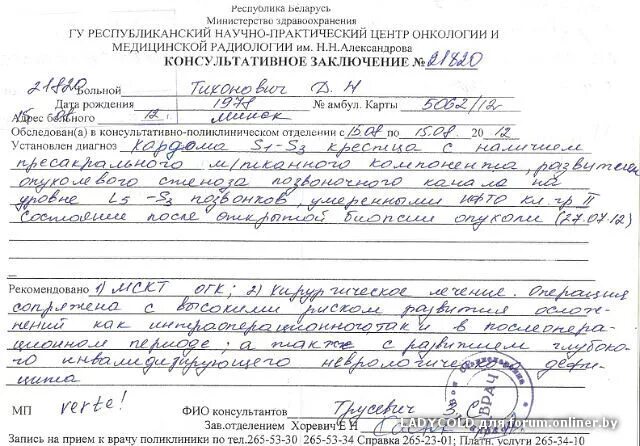 Республика Беларусь
Министерство здравоохранения
ГУ РЕСПУБЛИКАНСКИЙ НАУЧНО-ПРАКТИЧЕСКИЙ ЦЕНТР ОНКОЛОГИИ И
МЕДИЦИНСКОЙ РАДИОЛОГИИ им. Н.Н.Александрова
КОНСУЛЬТАТИВНОЕ ЗАКЛЮЧЕНИЕ № 21820
21820 Больной Тихонович Д. Н
Дата рождения 1978 № амбул. Карты 5062/12г
Адрес больного 12 г. Минск
Обследован(а) в консультативно-поликлиническом отделении с 15.08 по 15.08. 2012
Установлен диагноз Хордома S1-S3 крестца с наличием
пресакрального м/тканного компонента, развитием
опухолевого стеноза позвоночного канала на
уровне L5-S3 позвонков, умеренными кл. гр II
Состояние после открытой биопсии опухоли (27.07.12)
Рекомендовано 1) МСКТ ОГК; 2) Хирургическое лечение. Операция
сопряжена с высокими риском развития ослож-
нений как интраоперационного, так и в послеопера-
ционном периоде; а также с развитием глубоко-
го инвалидизирующего неврологического дефи-
цита
МП verte! ФИО консультантов Трусевич З. С.
Зав.отделением Хоревич Е Н
ВРАЧ
LADYCOLD для forum.onliner.by
Запись на прием к врачу поликлиники по тел.265-53-30 265-53-34 Справка 265-23-01; Платн. услуги 265-34-10